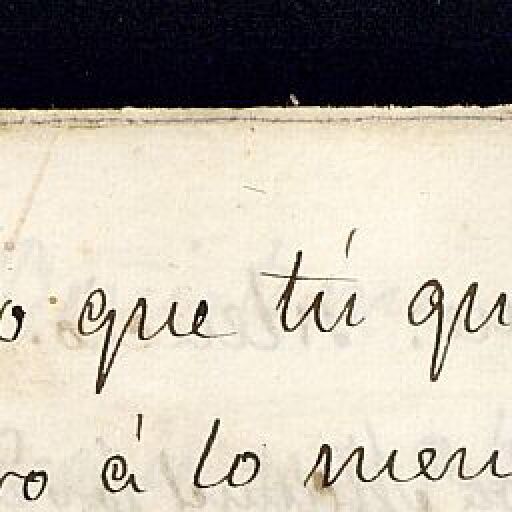 o que tú qu
ro á lo men